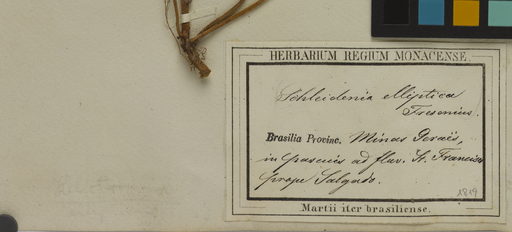 HERBARIUM REGIUM MONACENSE.
Schleidenia elliptica
Fresenius.
Brasilia Provinc. Minas Geraës,
in pascuis ad fluv. St. Francisci
prope Salgado.
1819
Martii iter brasiliense.